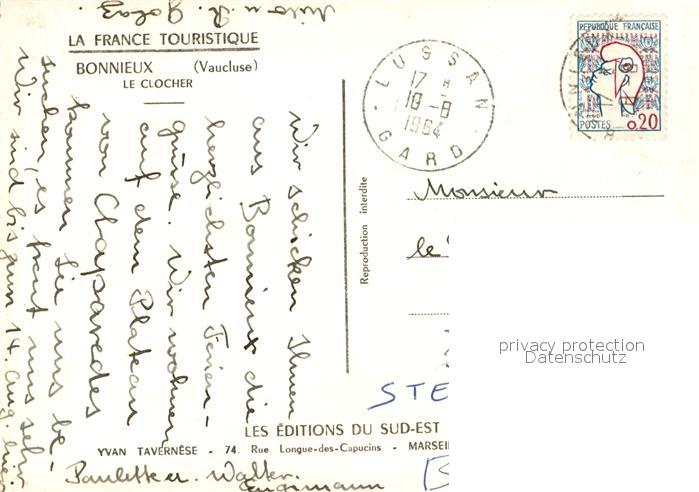 LA FRANCE TOURISTIQUE
BONNIEUX (Vaucluse)
LE CLOCHER
Wir schicken Ihnen
aus Bonnieux die
herzlichsten Ferien-
grüsse. Wir wohnen
auf dem Plateau
von Claparedes
kommen Sie uns be-
suchen, es freut uns sehr
Wir sind bis zum 14. Aug. hier.
Paulette u. Walter
u. R.
Reproduction interdite
LUSSAN
17 H
10-8
1964
GARD
REPUBLIQUE FRANÇAISE
POSTES 0,20
Monsieur
le
STE
privacy protection
Datenschutz
LES ÉDITIONS DU SUD-EST
YVAN TAVERNÈSE - 74, Rue Longue-des-Capucins - MARSEI